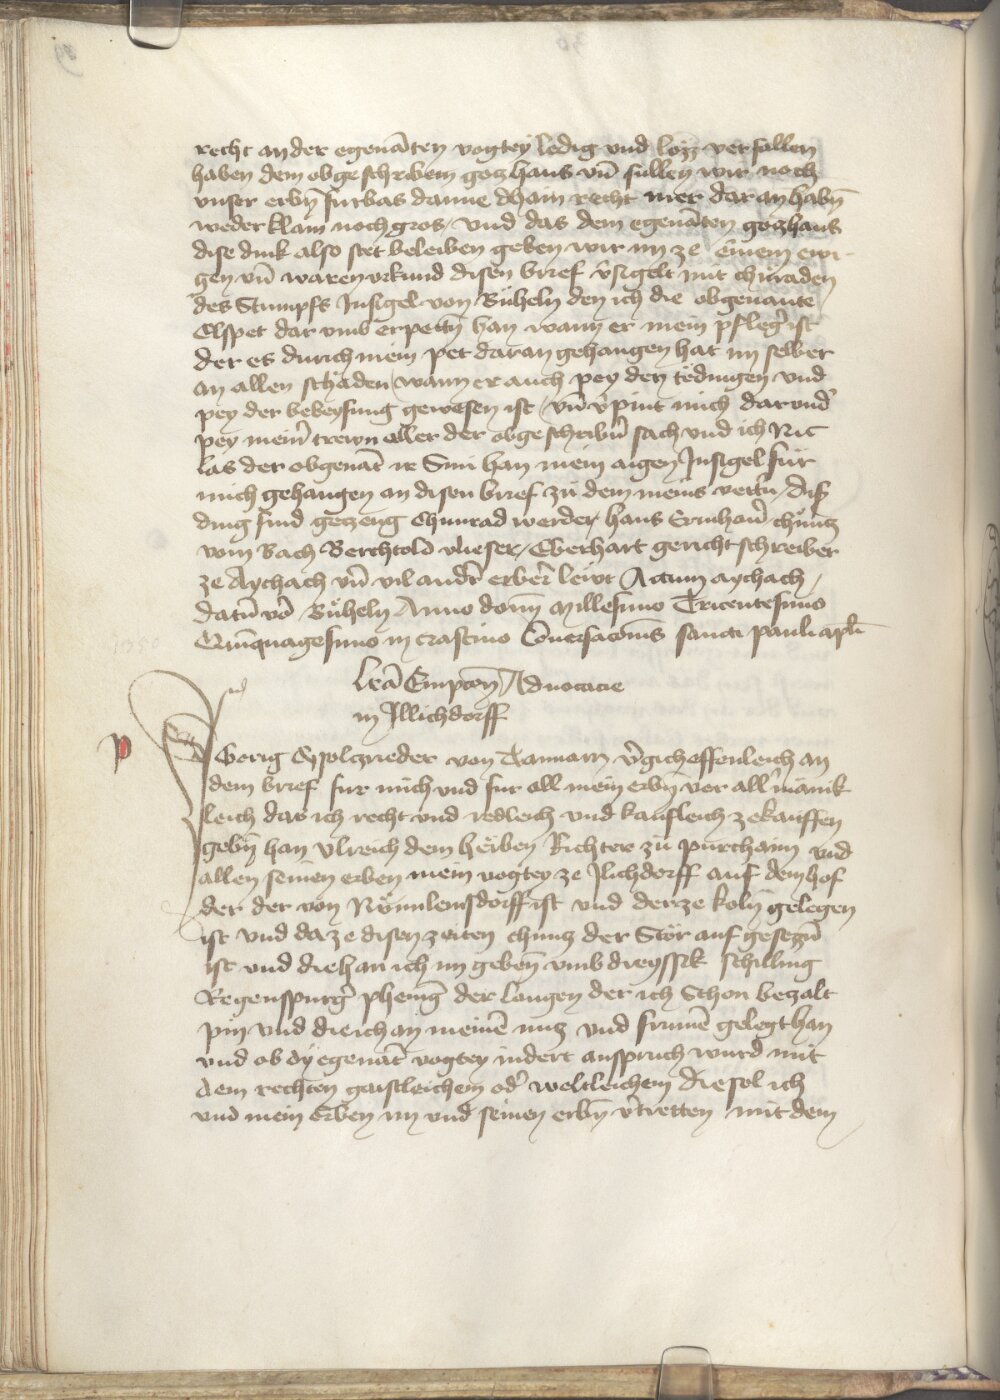 recht an der egenāten vogtey ledig vnd loz verfallen
haben dem obgeschriben goczhaus vn̄ sullen wir noch
vnser erbn̄ furbas danne dhain recht mer dar an habn̄
weder klain noch gros / vnd das dem egenāten goczhaus
dise dink also stet beleiben geben wir im ze einem ewi-
gen vn̄ waren vrkund disen brief v̓sigelt mit chunraden
des Stumpfs Insigel von Büheln den ich die obgenante
Elspet dar vmb erpetn̄ han wann er mein pfleg̓ ist
der es durich mein pet daran gehangen hat im selber
an allen schäden / wann er auch pey den tedingen vnd
pey der beweysung gewesen ist / vn̄ v̓pint mich darund̓
pey mein̓ trewn aller der obgeschribn̄ sach vnd ich Nic
las der obgenāt ir Sun han mein aigen Insigel für
mich gehangen an disen brief zu dem meins vettn̓ / diser
ding sind geczeug Chunrad werder / hans
vom Bach Berchtold vlieser / Eberhart gerichtschreiber
ze Aychach vn̄ vil and̓r erber̓ leivt Actum aychach /
datū vō Büheln Anno dom̄ Millesimo Tricentesimo
Quīquagesimo in crastino Cōuersacōnis sancti pauli apl̄i
lr̄a Empcōn̄ Aduocacie
in Illichdorff
p
Gorig Eysolczrieder von Tannarn v̓gich offenleich an
dem brief fur mich vnd fur all mein erbn̄ vor all̓ mānik
leich das ich recht vnd redleich vnd kaufleich ze kauffen
gebn̄ han vlreich dem heiben Richter zu purchaim vnd
allen seinen erben mein vogtey ze Ilichdorff auf dem hof
der der von ist vnd der ze koln gelegen
ist vnd da ze disen zeiten chunz der Stör auf gesezn̄
ist vnd die han ich im gebēn vmb dreyssik schilling
Regenspurg̓ phening̓ der langen der ich Schon bezalt
pin vnd die ich an meinē nucz vnd frumē gelegt han
vnd ob dy egenāt vogtey indert anspruch wurd mit
dem rechten gaistleichem od̓ weltleichem die sol ich
vnd mein erben im vnd seinen erbn̄ v̓tretten mit dem